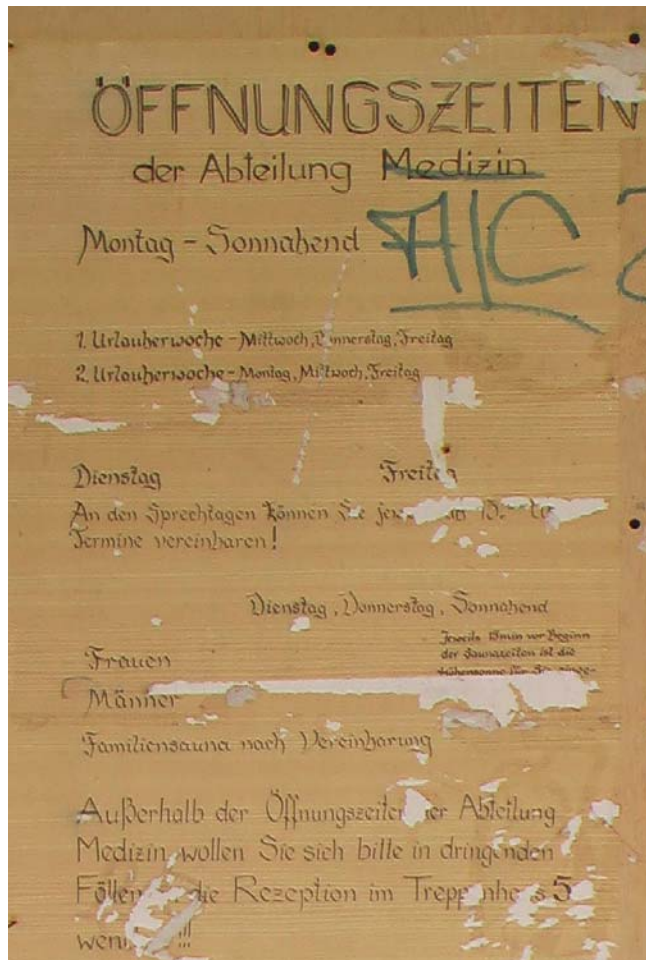 ÖFFNUNGSZEITEN
der Abteilung Medizin
Montag - Sonnabend
1. Urlauberwoche - Mittwoch, Donnerstag, Freitag
2. Urlauberwoche - Montag, Mittwoch, Freitag
Dienstag Freitag
An den Sprechtagen können Sie
Termine vereinbaren!
Dienstag, Donnerstag, Sonnabend
Jeweils 15min vor Beginn
der Saunazeiten ist die
Frauen
Höhensonne für Sie
Männer
Familiensauna nach Vereinbarung
Außerhalb der Öffnungszeiten der Abteilung
Medizin wollen Sie sich bitte in dringenden
Fällen die Rezeption im Treppenhaus 5